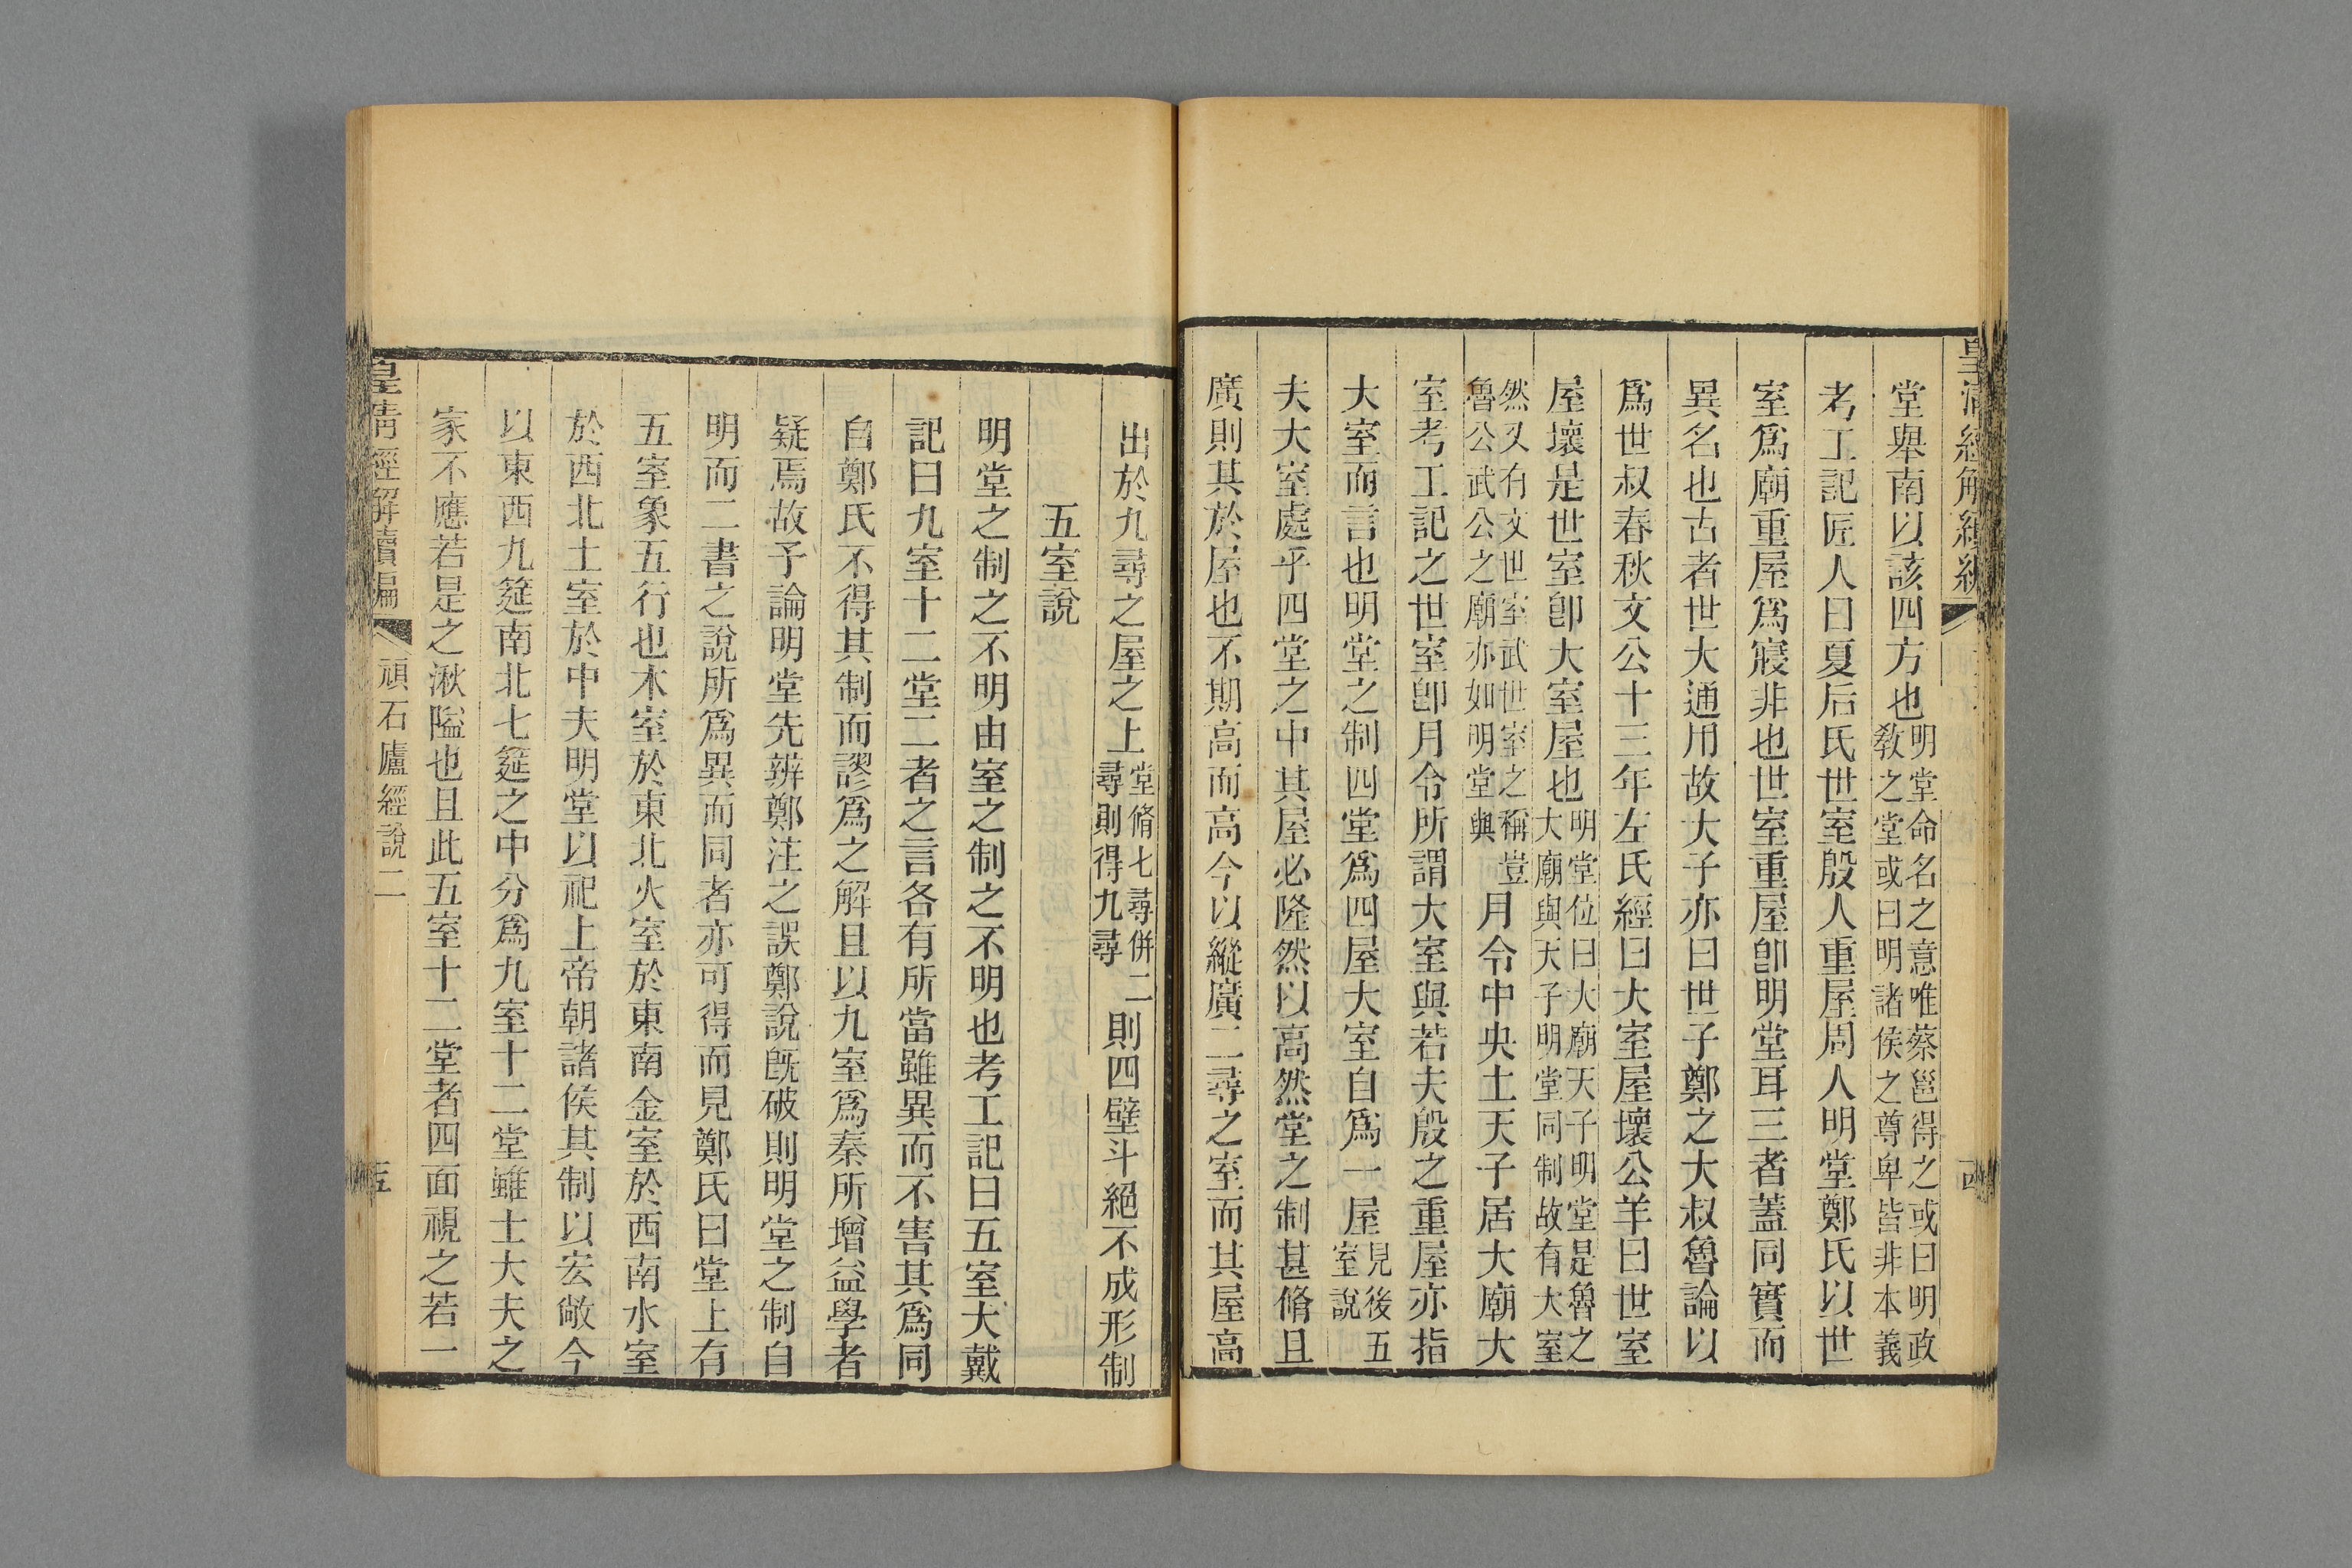 堂舉南以該四方也明堂命名之意唯蔡邕得之或曰明政教之堂或曰明諸侯之尊卑皆非本義
考工記匠人曰夏后氏世室殷人重屋周人明堂鄭氏以世
室爲廟重屋爲寢非也世室重屋卽明堂耳三者蓋同實而
異名也古者世大通用故大子亦曰世子鄭之大叔魯論以
爲世叔春秋文公十三年左氏經曰大室屋壞公羊曰世室
屋壞是世室卽大室屋也明堂位曰大廟天子明堂是魯之大廟與天子明堂同制故有大室
然又有文世室武世室之稱豈魯公武公之廟亦如明堂與月令中央土天子居大廟大
室考工記之世室卽月令所謂大室與若夫殷之重屋亦指
大室而言也明堂之制四堂爲四屋大室自爲一屋見後五室說
夫大室處乎四堂之中其屋必隆然以高然堂之制甚脩且
廣則其於屋也不期高而高今以縱廣二尋之室而其屋高
出於九尋之屋之上堂脩七尋併二尋則得九尋則四壁斗絕不成形制
五室說
明堂之制之不明由室之制之不明也考工記曰五室大戴
記曰九室十二堂二者之言各有所當雖異而不害其爲同
自鄭氏不得其制而謬爲之解且以九室爲秦所增益學者
疑焉故予論明堂先辨鄭注之誤鄭說旣破則明堂之制自
明而二書之說所爲異而同者亦可得而見鄭氏曰堂上有
五室象五行也木室於東北火室於東南金室於西南水室
於西北土室於中夫明堂以祀上帝朝諸侯其制以宏敞今
以東西九筵南北七筵之中分爲九室十二堂雖士大夫之
家不應若是之湫隘也且此五室十二堂者四面視之若一
皇清經解續編
頑石廬經說二
五